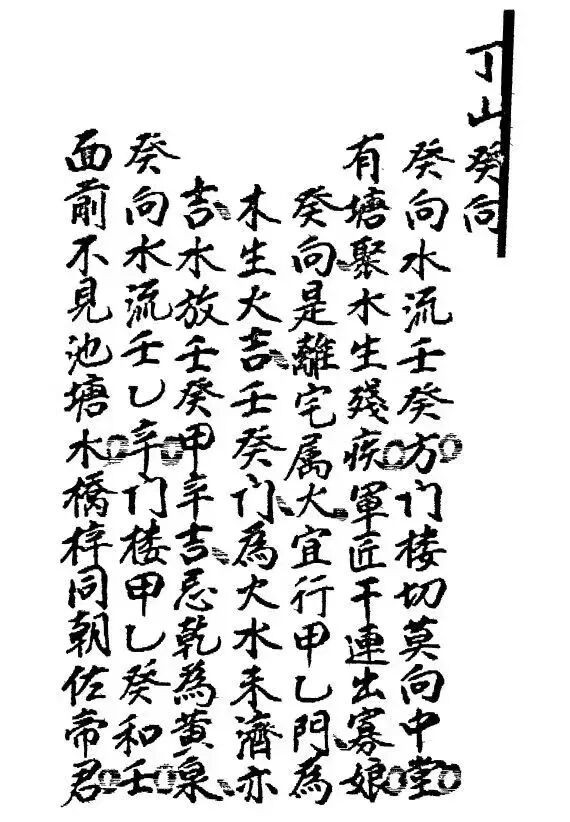 丁山癸向
癸向水流壬癸方门楼切莫向中堂
有塘聚水生殘疾軍匠干連出寡娘
癸向是離宅属火宜行甲乙門為
木生火吉壬癸门為火水未濟亦
吉水放壬癸甲辛吉忌乾為黄泉
癸向水流壬乙辛门楼甲乙癸和壬
面前不見池塘水橋梓同朝佐帝君